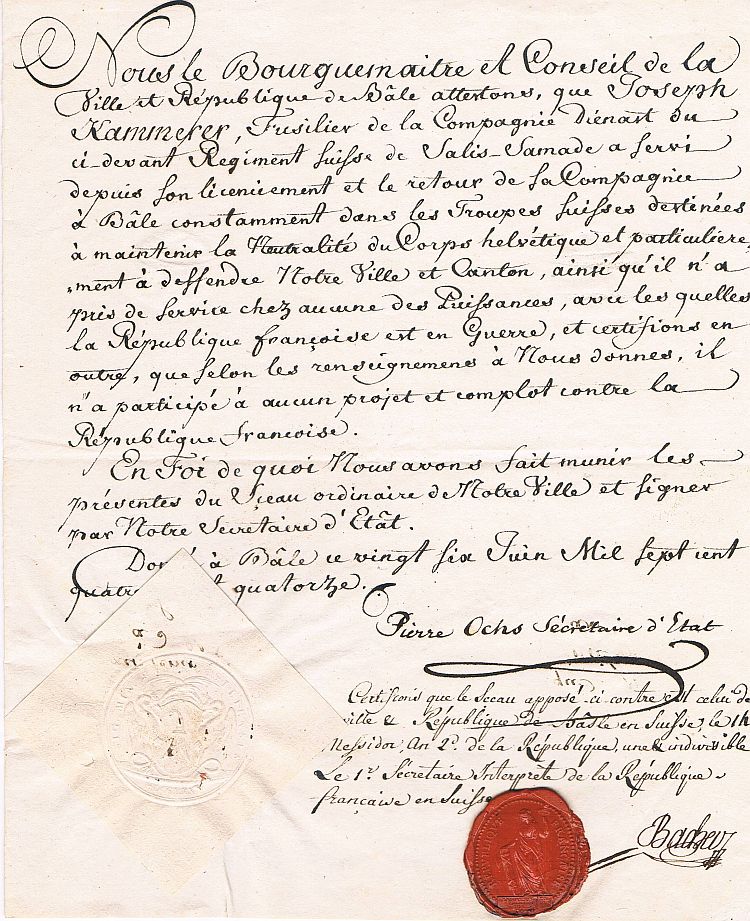 Nous le Bourguemaitre et Conseil de la
Ville et République de Bâle attestons, que Joseph
Kammerer, Fusilier de la Compagnie Diénast du
ci-devant Regiment suisse de Salis-Samade a servi
depuis son licenciement et le retour de sa Compagnie
à Bâle constamment dans les Troupes suisses destinées
à maintenir la Neutralité du Corps helvétique et particuliere,
„ment à deffendre Notre Ville et Canton, ainsi qu'il n'a
pris de service chez aucune des Puissances, avec les quelles
la République françoise est en Guerre, et certifions en
outre, que selon les renseignemens à Nous donnes, il
n'a participé à aucun projet et complot contre la
République francoise.
En Foi de quoi Nous avons fait munir les
présentes du Sçeau ordinaire de Notre Ville et signer
par Notre Secretaire d'Etât.
à Bâle ce vingt six Juin Mil sept cent
quatorze.
Pierre Ochs Sécretaire d'Etat
Certifions que le Sceau apposé ci contre est celui de
ville & République de Basle en Suisse; le 14
Messidor, An 2e. de la République, une & indivisible
Le 1er. Sécrétaire Interprète de la République
française en Suisse
Bacher